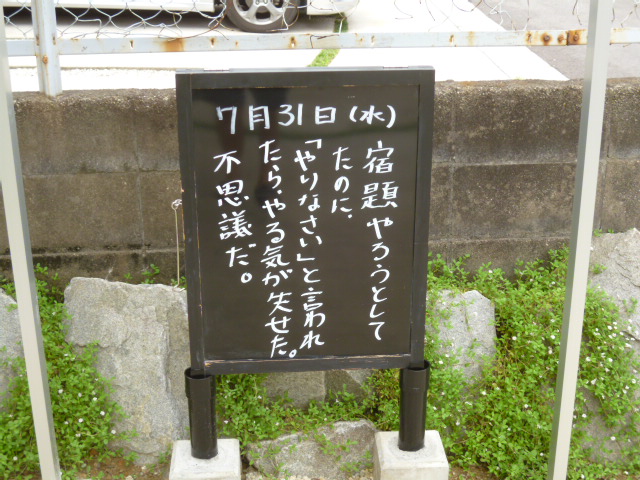 7月31日(水)
宿題やろうとして
たのに、
「やりなさい」と言われ
たら、やる気が失せた。
不思議だ。